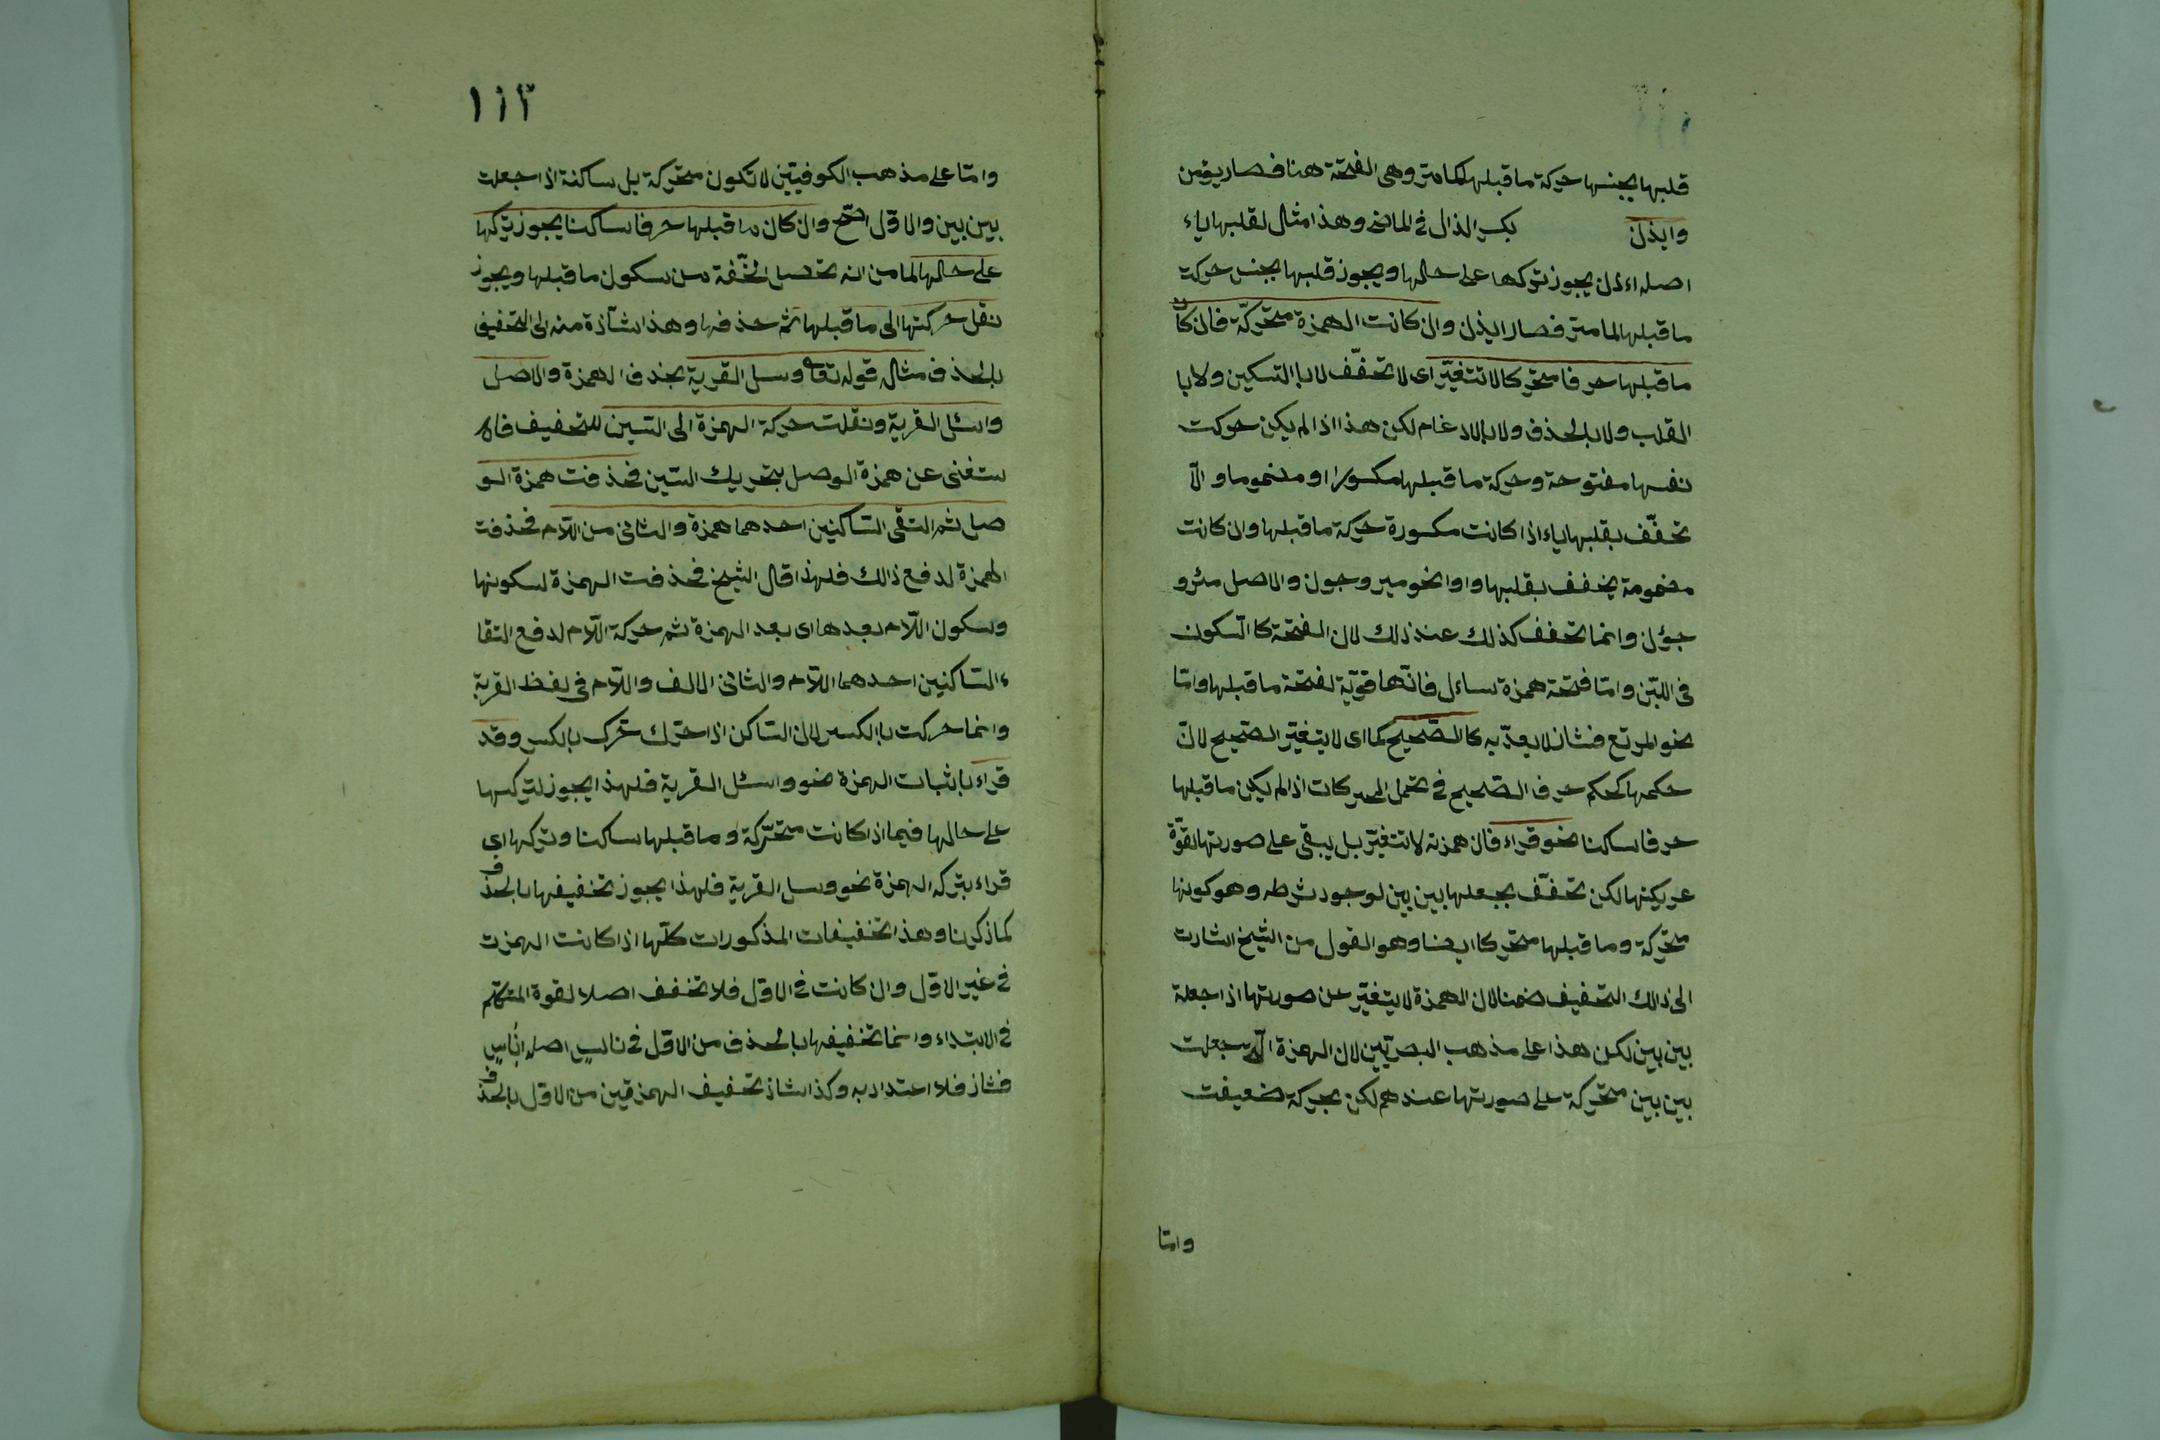 قلبها بجنسها حركة ما قبلها كما مرّ وهى الفتحة هنا فصار يؤمن
وايذن بكسر الذال فى الماضى وهذا مثال لقلبها ياء
اصله اءذن يجوز تركها على حالها ويجوز قلبها بجنس حركت
ما قبلها لما مرّ فصار ايذن وان كانت الهمزة متحرّكة فان كان
ما قبلها حرفا متحركا لا تتغيّر اى لا تخفّف لا باالتسكين ولا با
القلب ولا بالحذف ولا بالادغام لكن هذا اذا لم يكن حوكت
نفسها مفتوحة وحركة ما قبلها مكسورا او مضموما والّا
تخفّف بقلبها ياء اذا كانت مكسورة حركة ما قبلها وان كانت
مضمومة يخفف بقلبها واوا نحو مير وجون والاصل مئر و
جؤن وانما تخفف كذلك عند ذلك لان الفتحة كا السّكون
فى اللّين وامّا فتحة همزة سأل فانّها قويّة لفتحة ما قبلها وامّا
نحو المرتع فشاذ لا يعدّ به كا الصّحيح كما اى لا يتغيّر الصّحيح لانّ
حكمها كحكم حرف الصّحيح فى تحمل الحركات اذا لم يكن ما قبلها
حرفا ساكنا نحو قراء فان همزته لا تتغيّر بل يبقى على صورتها لقوّة
عريكتها لكن تخفّف بجعلها بين بين لوجود شرطه وهو كونها
متحركة وما قبلها متحركا ايضا وهو القول من الشّيخ اشارت
الى ذالك التخفيف ضمنا لان الهمزة لا يتغيّر عن صورتها اذا جعلة
بين بين لكن هذا على مذهب البصريّين لان الهمزة الّتى جعلت
بين بين متحركة على صورتها عندهم لكن بحركة ضعيفت
وامّا
١١٣
وامّا على مذهب الكوفيّين لا تكون متحركة بل ساكنة اذا جعلت
بين بين والاوّل اصحّ وان كان ما قبلها حرفا ساكنا يجوز تركها
على حالها لما من انه تحصل الخّفة من سكون ما قبلها ويجوز
نقل حركتها الى ما قبلها ثم حذفها وهذا اشآذة منه الى التخفيف
بالحذف مثال قوله تعا وسل القرية بحذف الهمزة والاصل
واسئل القرية ونقلت حركة الهمزة الى السّين للتخفيف فاه
ستغنى عن همزة الوصل بتحريك السّين فحذفت همزة الو
صل ثم التقى السّاكنين احدهما همزة والثانى من اللّام فحذفت
الهمزة لدفع ذالك فلهذا قال الشيخ فحذفت الهمزة لسكونها
وسكون اللّام بعدها اى بعد الهمزة ثم حركة اللّام لدفع التقا
ء السّاكنين احدهما اللّام والثانى الالف واللّام فى لفظ القرية
وانما حركت با الكسر لان السّاكن اذا حرّك تحرك بالكسر وقد
قراء باثبات الهمزة نحو واسئل القرية فلهذا يجوز لتركها
على حالها فيما اذا كانت متحرّكة وما قبلها ساكنا وتركها اى
قراء بتركه الهمزة نحو وسل القرية فلهذا يجوز تخفيفها بالحذف
كما ذكرنا وهذا تخفيفات المذكورات كلّها اذا كانت الهمزت
فى غير الاوّل وان كانت فى الاوّل فلا تخفف اصلا لقوة المتكلّم
فى الابتداء وانما تخفيفها بالحذف من الاوّل فى ناسٍ اصله اُناسٍ
فشاذ فلا اعتداد به وكذا شاذ تخفيف الهمزتين من الاوّل بالحذف